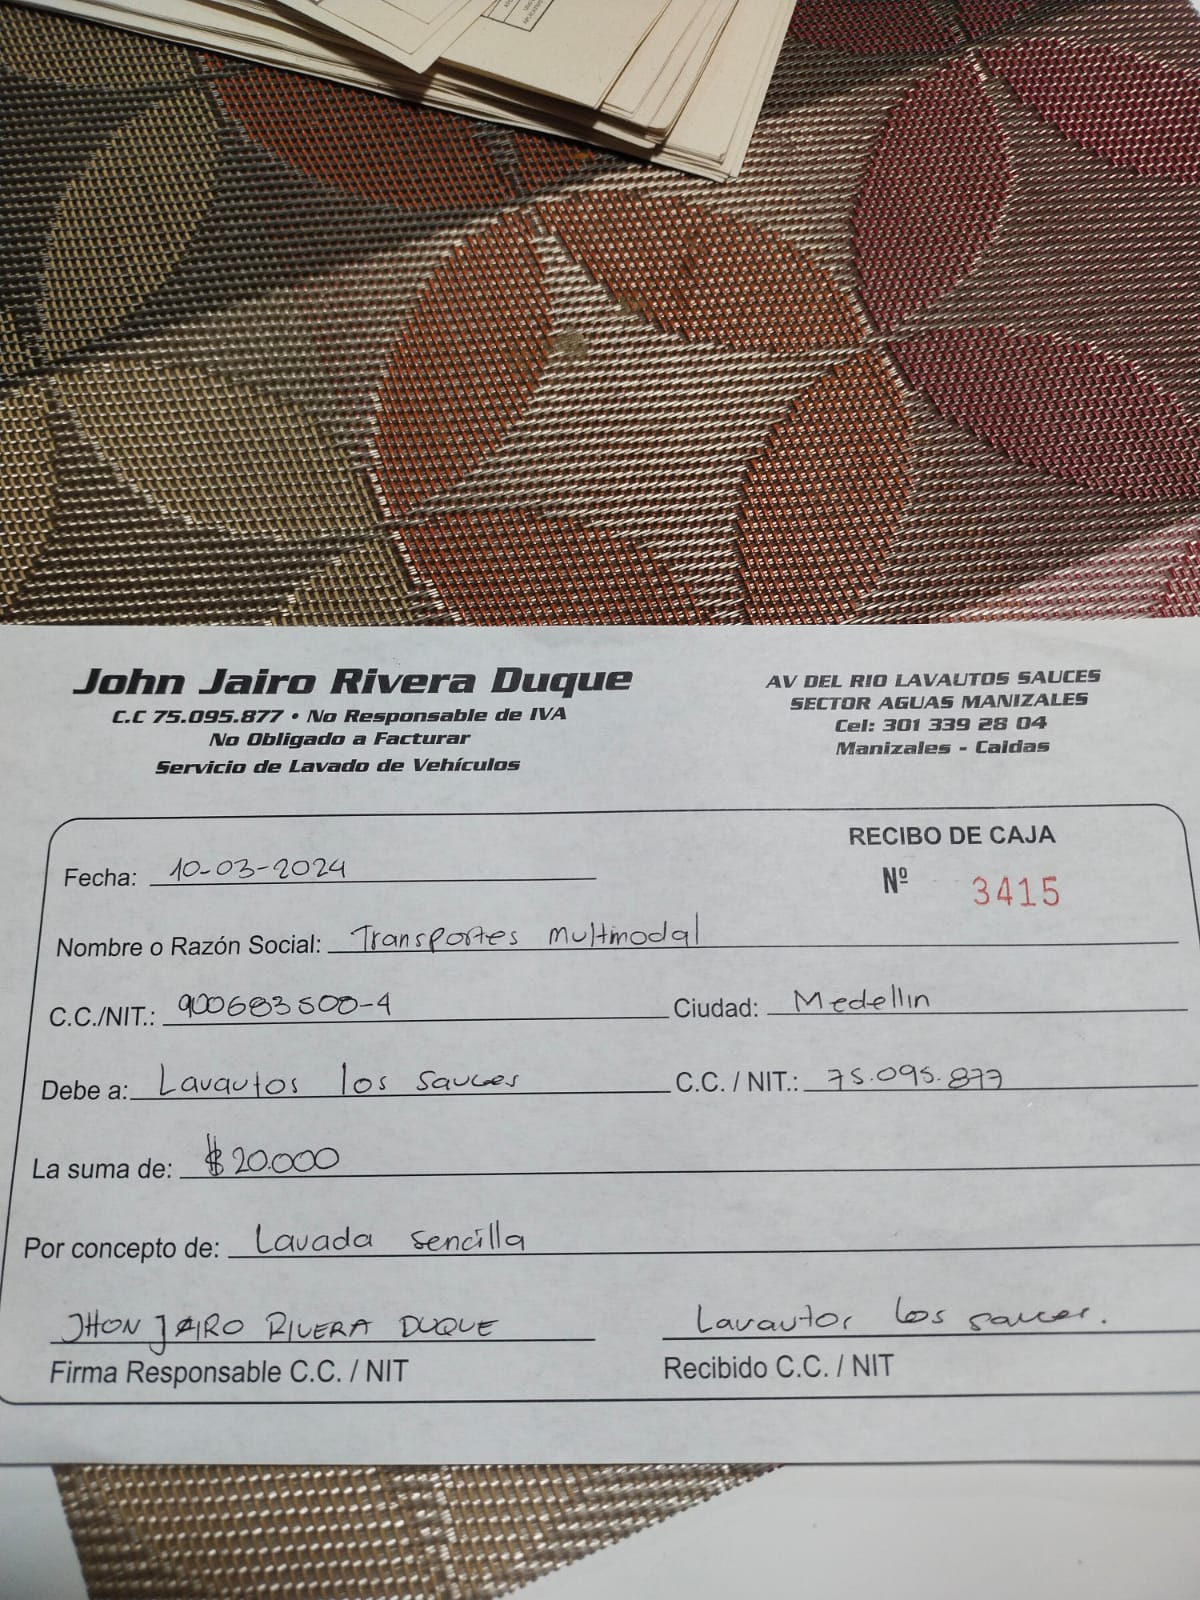 John Jairo Rivera Duque
C.C 75.095.877 • No Responsable de IVA
No Obligado a Facturar
Servicio de Lavado de Vehículos
AV DEL RIO LAVAUTOS SAUCES
SECTOR AGUAS MANIZALES
Cel: 301 339 28 04
Manizales - Caldas
RECIBO DE CAJA
Nº 3415
Fecha: 10-03-2024
Nombre o Razón Social: Transportes multimodal
C.C./NIT.: 900683500-4 Ciudad: Medellin
Debe a: Lavautos los sauces C.C. / NIT.: 75.095.877
La suma de: $20.000
Por concepto de: Lavada sencilla
JHON JAIRO RIVERA DUQUE Lavautos los sauces.
Firma Responsable C.C. / NIT Recibido C.C. / NIT